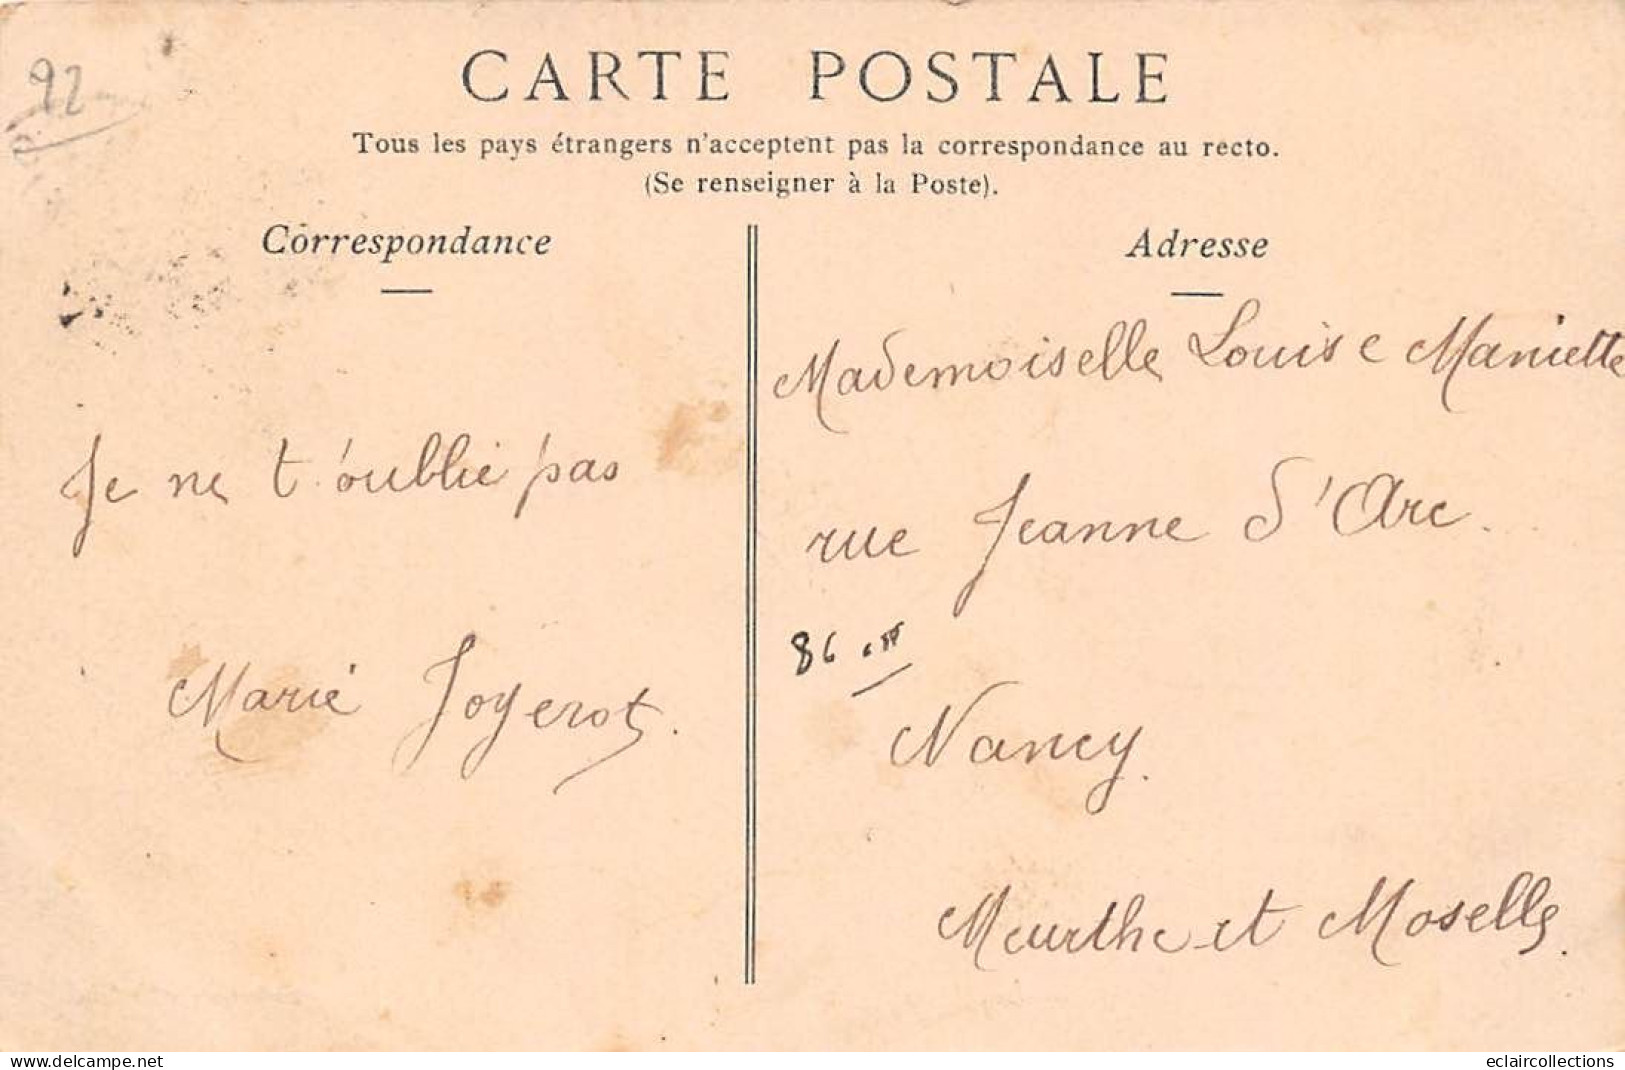 92
CARTE POSTALE
Tous les pays étrangers n'acceptent pas la correspondance au recto.
(Se renseigner à la Poste).
Correspondance
Je ne t'oublie pas
Marie Joyerot.
Adresse
Mademoiselle Louise Maniette
rue Jeanne d'Arc.
86
Nancy.
Meurthe-et Moselle.
www.delcampe.net
eclaircollections